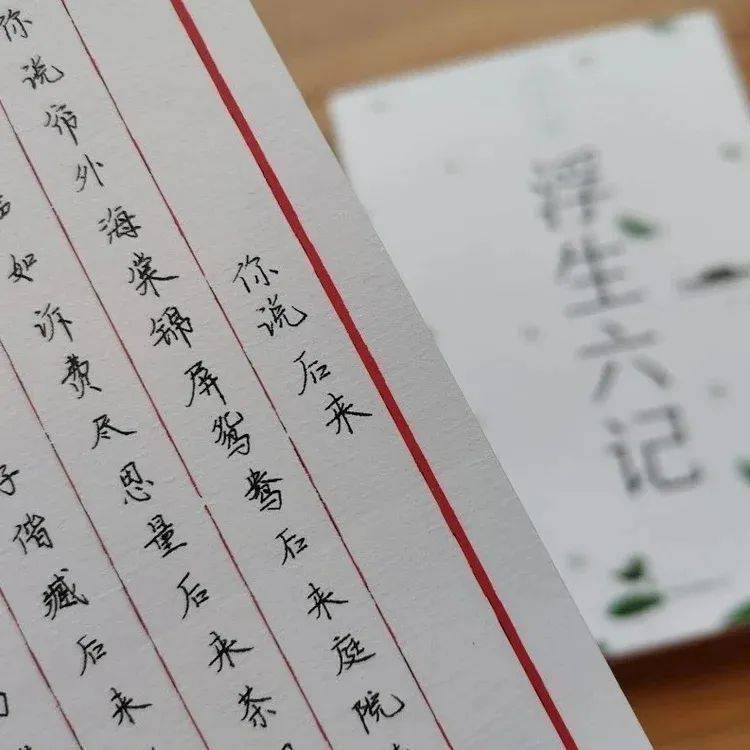 你说后来
你说帘外海棠锦屏鸳鸯后来庭院
如诉费尽思量后来茶
子偕臧后来
浮生六记